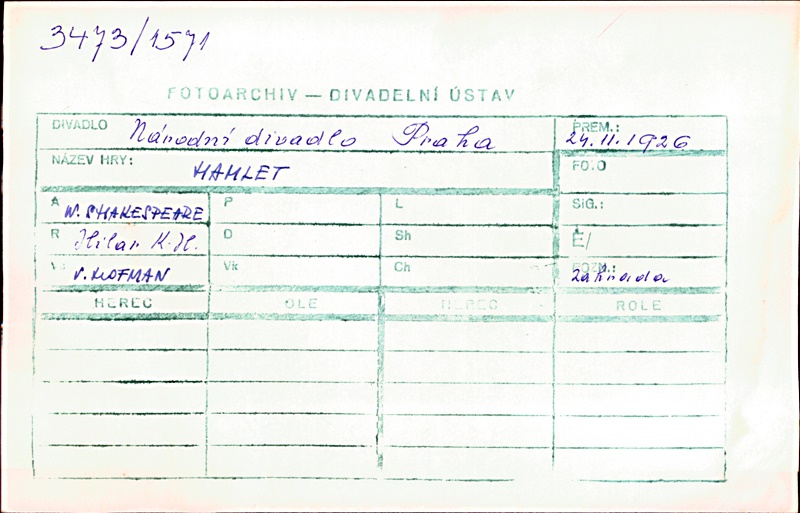 3473/1571
FOTOARCHIV — DIVADELNÍ ÚSTAV
DIVADLO Národní divadlo Praha PREM.: 24.11.1926
NÁZEV HRY: HAMLET FOTO
A W. SHAKESPEARE P L SIG.:
R Hilar K.H. D Sh Č/
V V. HOFMAN Vk Ch POZN.: zahrada
HEREC OLE HEREC ROLE